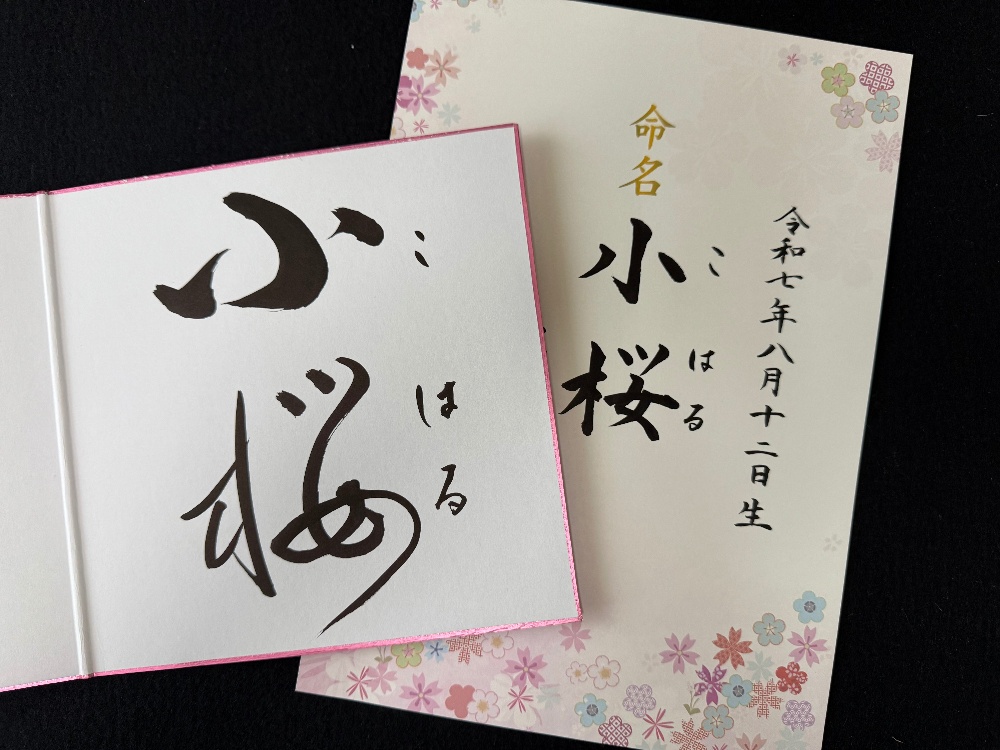 小桜
こはる
令和七年八月十二日生
命名
小桜
こはる